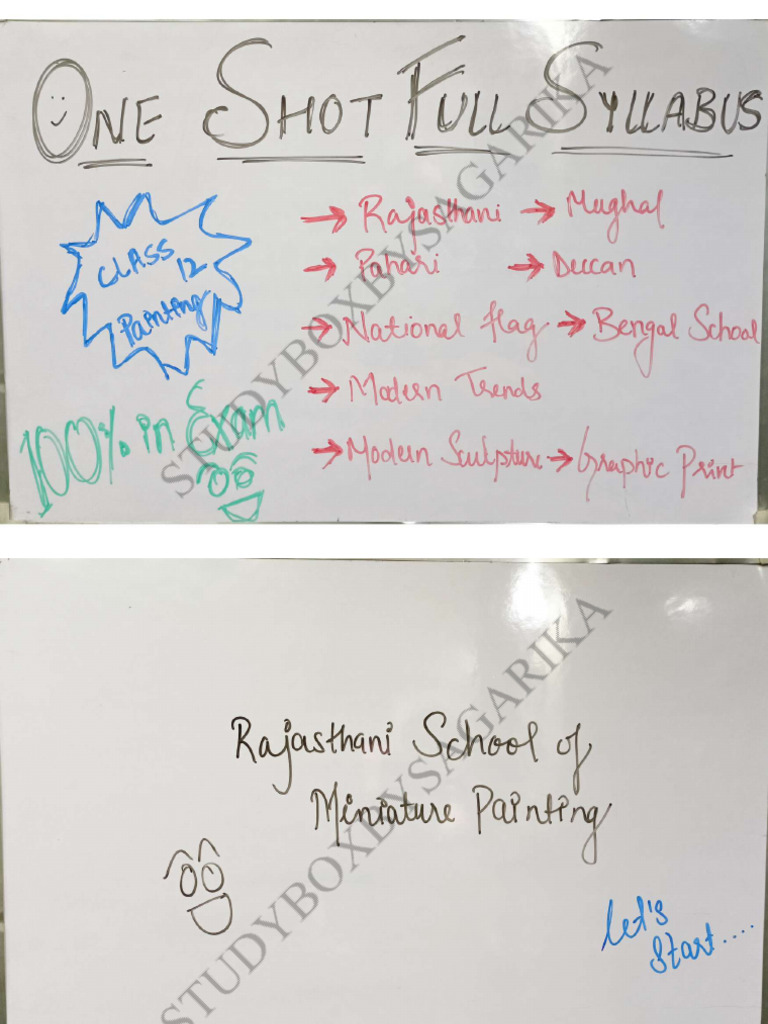 ONE SHOT FULL SYLLABUS
CLASS 12
Painting
100% in Exam
→ Rajasthani → Mughal
→ Pahari → Deccan
→ National flag → Bengal School
→ Modern Trends
→ Modern Sculpture → Graphic Print
STUDYBOXBYSAGARIKA
Rajasthani School of
Miniature Painting
Let's
start....
STUDYBOXBYSAGARIKA